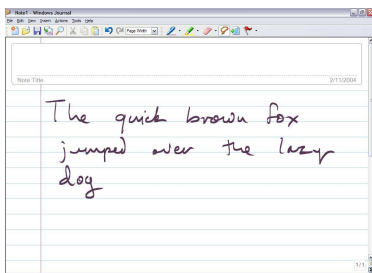 Note1 - Windows Journal
File Edit View Insert Actions Tools Help
Page Width
Note Title
2/11/2004
The quick brown fox
jumped over the lazy
dog
1/1